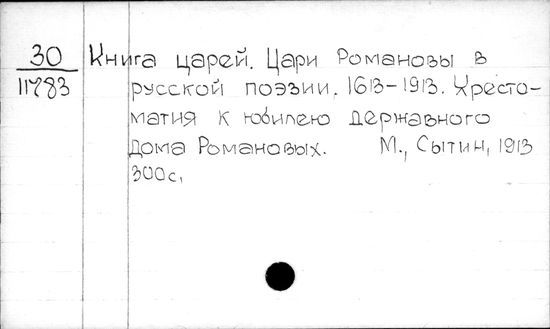 30 Книга царей. Цари Романовы в
11783 русской поэзии. 1613-1913. Хресто-
матия к юбилею державного
дома Романовых. М., Сытин, 1913
300с.